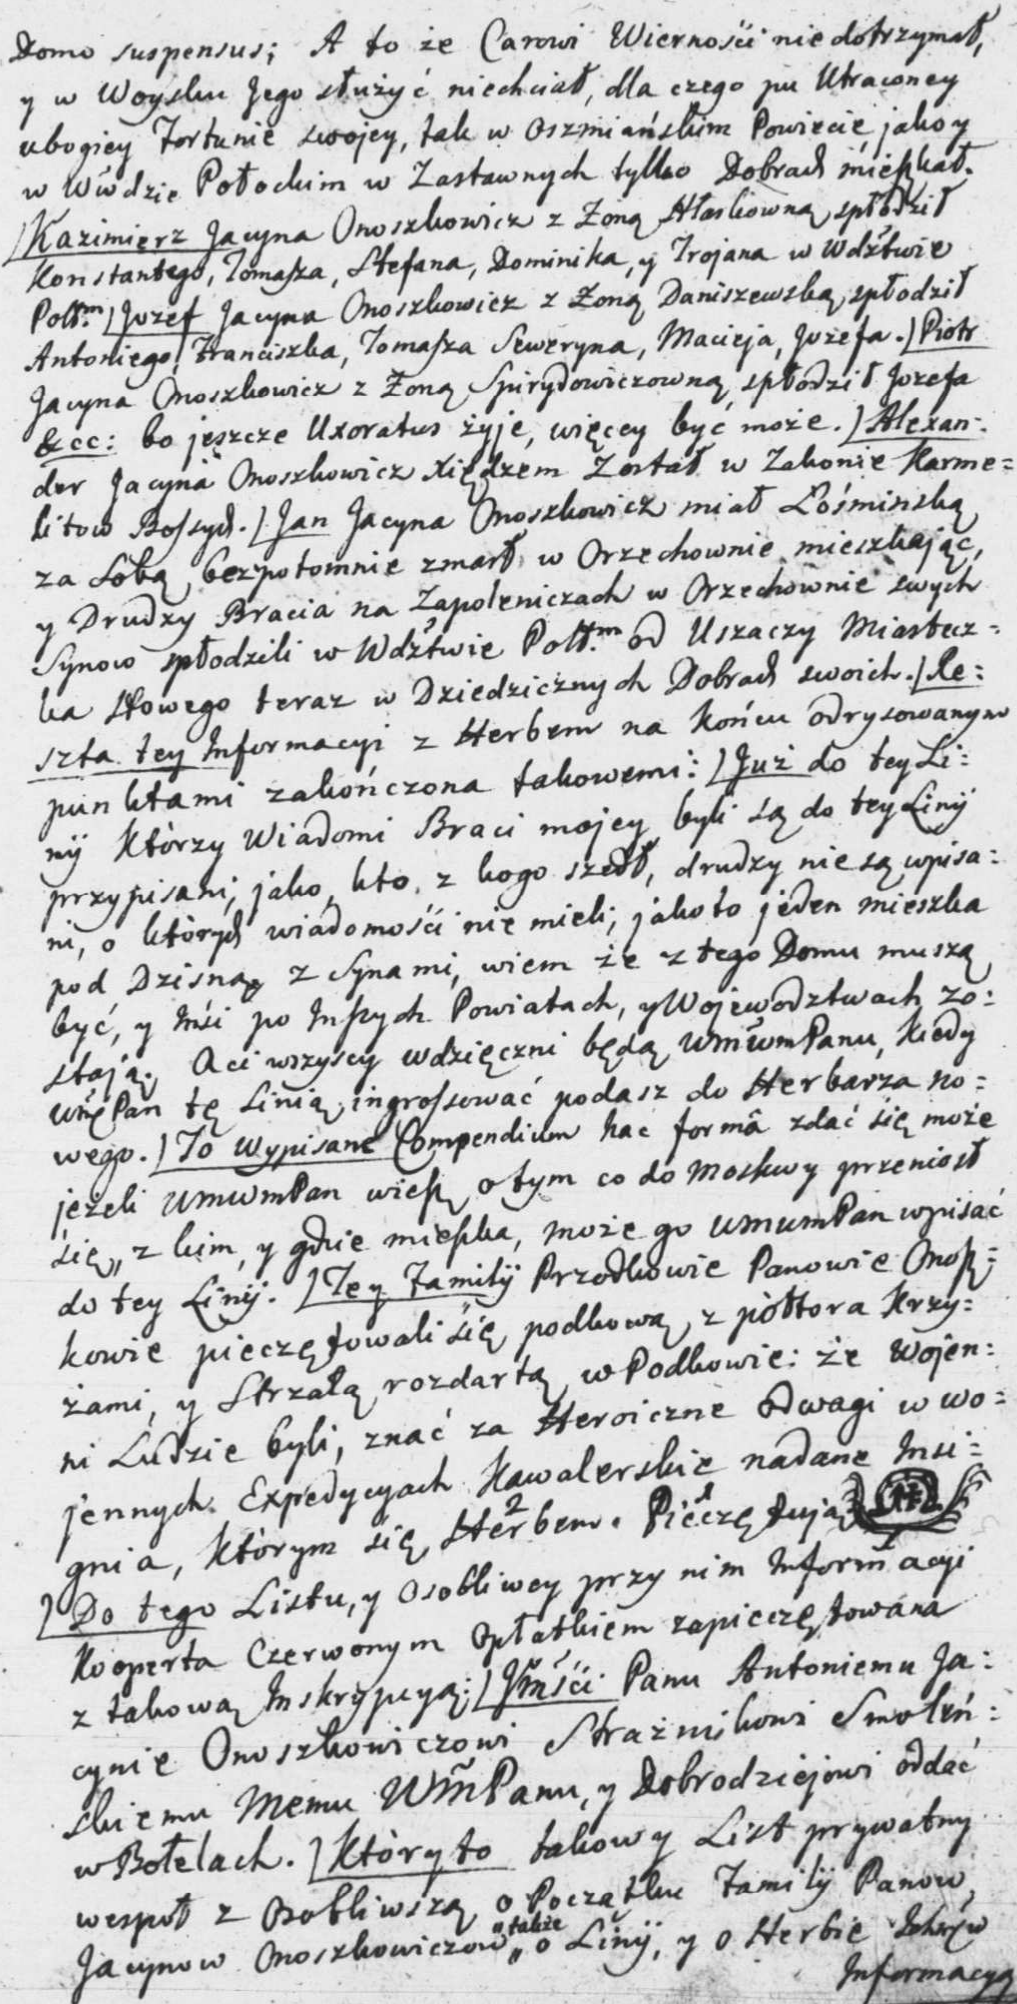 Domo suspensus; A to że Carowi Wiernośći nie dotrzymał,
y w Woysku Jego służyć niechciał, dla czego pu Utraconey
ubogiey Fortunie swojey, tak w Oszmiańskim Powiecie jako y
w Wwdzie Połockim w Zastawnych tylko Dobrach mieszkał.
/Kazimierz Jacyna Onoszkowicz z Żoną Hłaskowną spłodził
Konstantego, Tomasza, Stefana, Dominika, y Trojana w Wdztwie
Połł:m /Jozef Jacyna Onoszkowicz z Żoną Daniszewską spłodził
Antoniego, Franciszka, Tomasza Seweryna, Macieja, Jozefa. /Piotr
Jacyna Onoszkowicz z Żoną Spirydowiczowną spłodził Jozefa
&cc: bo jęszcze Uxoratus żyje, więcey być może. /Alexan-
der Jacyna Onoszkowicz Xiędzem Został w Zakonie Karme=
litow Bossych. /Jan Jacyna Onoszkowicz miał Łośminską
za Sobą, bezpotomnie zmarł w Orzechownie mieszkając,
y Drudzy Bracia na Zapoleniczach w Orzechownie swych
Synow spłodzili w Wdztwie Połł:m od Uszaczy Miastecz=
ka Nowego teraz w Dziedzicznych Dobrach swoich. /Re=
szta tey Informacyi z Herbem na końcu odrysowanym
punktami zakończona takowemi: /Już do tey Li=
nij Którzy Wiadomi Braci mojey byli są do tey Linij
przypisani, jako, kto, z kogo szedł, drudzy nie są wpisa=
ni, o których wiadomośći nie mieli; jakoto jeden mieszka
pod Dzisną z Synami, wiem że z tego Domu muszą
być, y Inśi po Inszych Powiatach, y Wojewodztwach zo=
stają. Aci wszyscy wdzięczni będą WmwmPanu, kiedy
WmPan tę Linią ingrossować podasz do Herbarza no=
wego. /To Wypisane Compendium hac formâ zdać się może
jeżeli WmwmPan wiesz o tym co do Moskwy przeniosł
się, z kim, y gdzie mieszka, może go WmwmPan wpisać
do tey Linij. /Tey Familij Przodkowie Panowie Onosz=
kowie pieczętowali się podkową z półtora Krzy=
żami, y Strzałą rozdartą w Podkowie: że wojen=
ni Ludzie byli, znać za Heroiczne odwagi w wo=
jennych Expedycyach Kawalerskie nadane Insi=
gnia, którym się Herbem. Pieczętują
/Do tego Listu, y osobliwey przy nim Informacyi
Kooperta Czerwonym Opłatkiem zapieczętowana
z takową Inskrypcyą: /Jmśći Panu Antoniemu Ja=
cynie Onoszkowiczowi Strażnikowi Smoleń=
skiemu Memu WmPanu, y Dobrodziejowi oddać
w Bołelach. /Któryto takowy List prywatny
wespoł z Osobliwszą o Początku Familij Panow
Jacynow Onoszkowiczow także o Linij, y o Herbie Ichżew
Informacyą